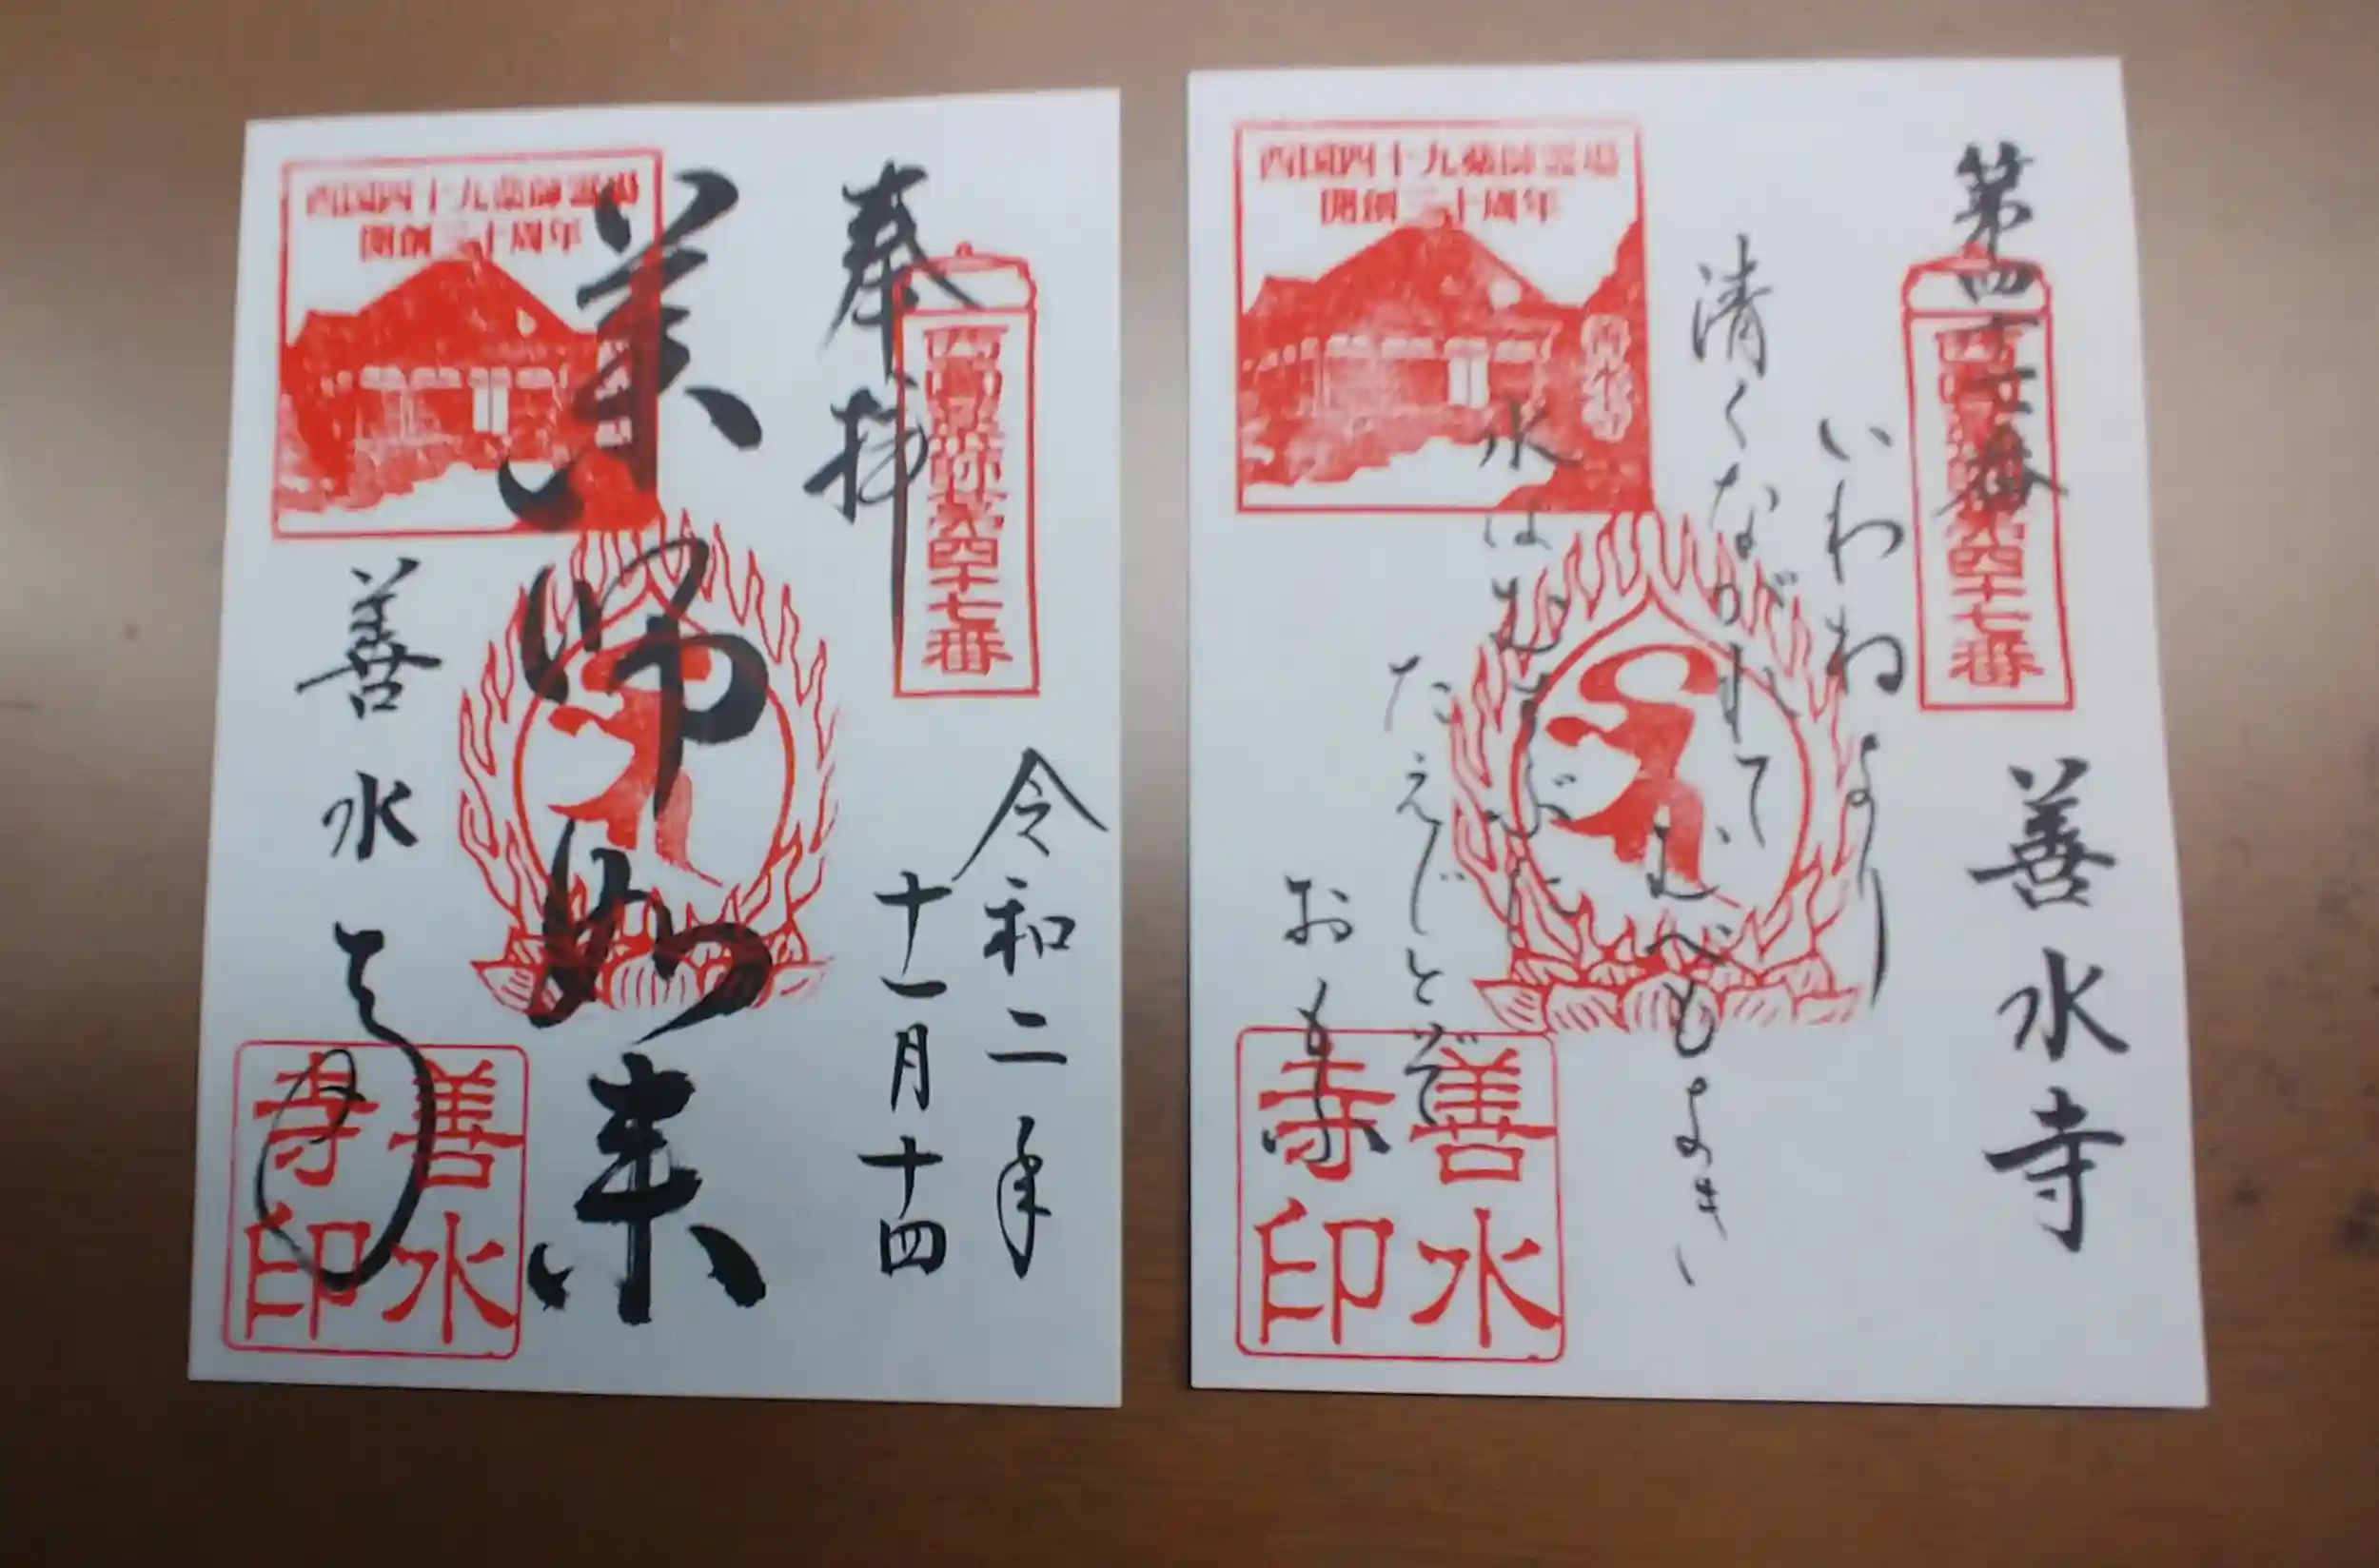 奉拝
西国薬師第四十七番
令和二年
十一月十四
薬師如来
西国四十九薬師霊場
開創三十周年
善水寺
善水寺印
第四十七番
善水寺
西国薬師第四十七番
いわねより
清くながれて
むべもよき
水はむすぶに
たえじとぞ
おもふ
西国四十九薬師霊場
開創三十周年
善水寺
善水寺印